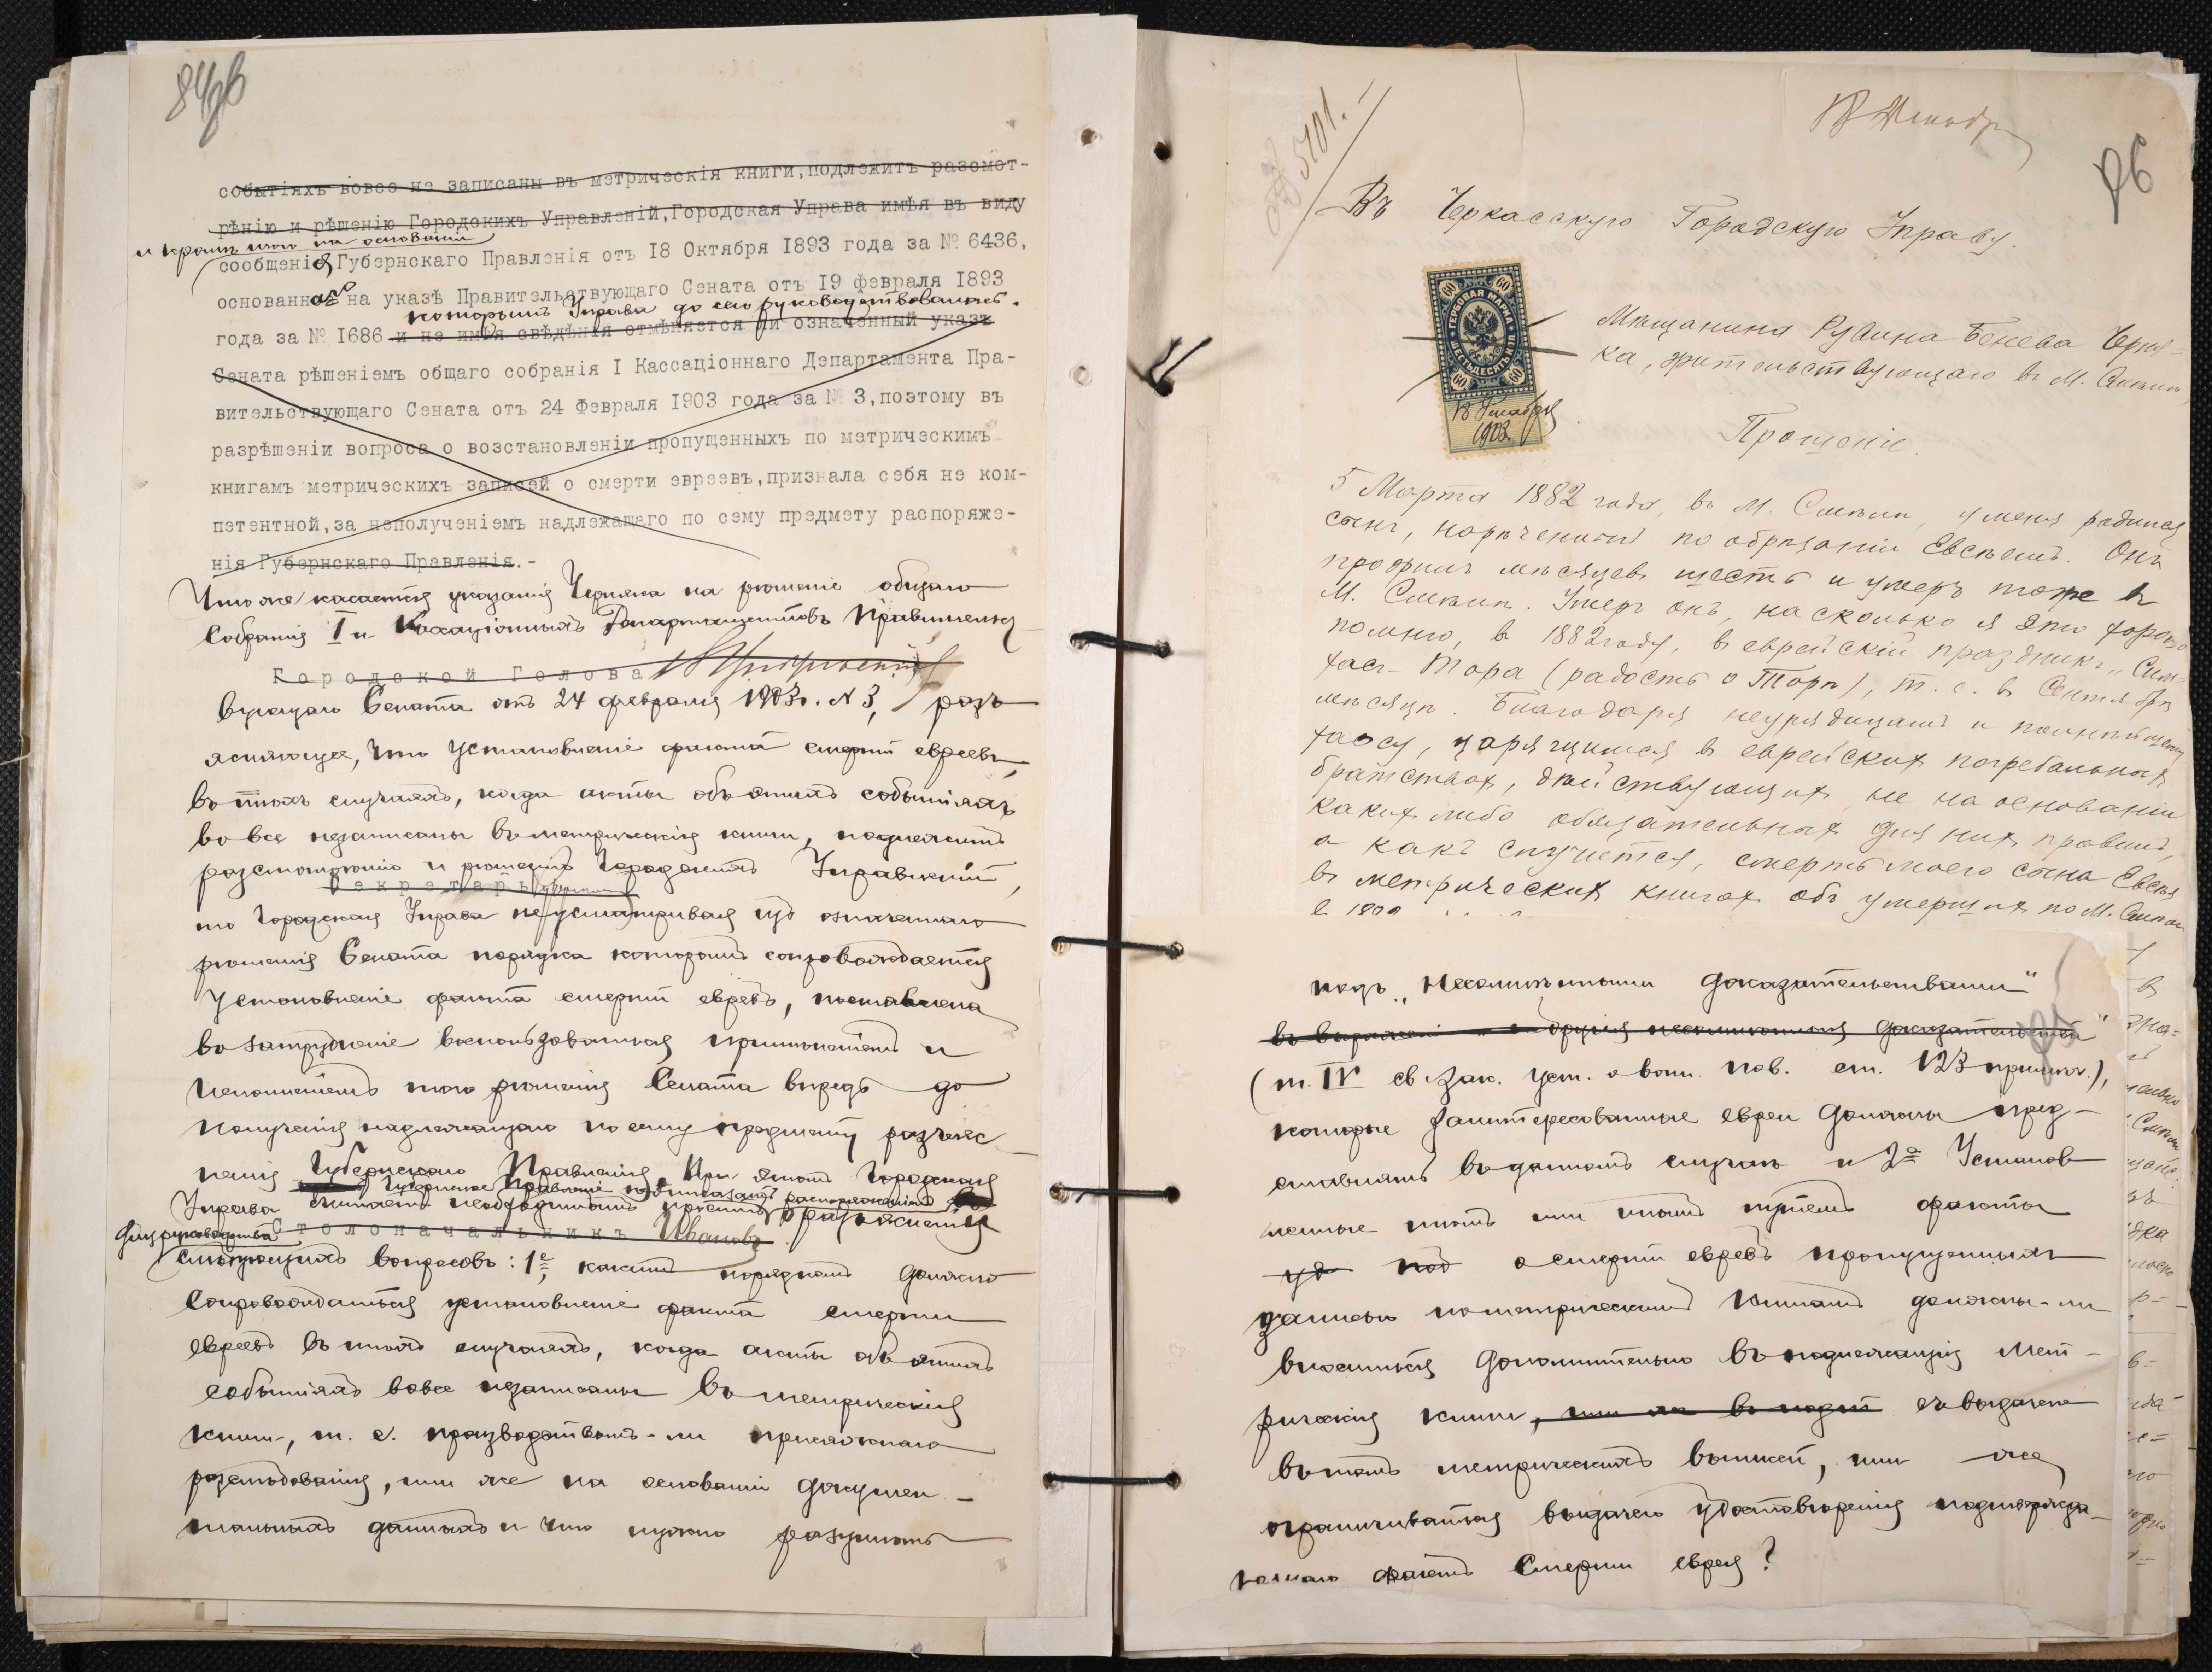 84об
событіяхъ вовсе не записаны въ метрическія книги, подлежитъ разсмот-
рѣнію и рѣшенію Городскихъ Управленій, Городская Управа имѣя въ виду
и кромѣ того на основаніи
сообщенія Губернскаго Правленія отъ 18 Октября 1893 года за № 6436,
основаннаго на указѣ Правительствующаго Сената отъ 19 февраля 1893
которымъ Управа до сего руководствовалась.
года за № 1686 и не имѣя свѣдѣнія отмѣняется ли означенный указъ
Сената рѣшеніемъ общаго собранія I Кассаціоннаго Департамента Пра-
вительствующаго Сената отъ 24 Февраля 1903 года за № 3, поэтому въ
разрѣшеніи вопроса о возстановленіи пропущенныхъ по метрическимъ
книгамъ метрическихъ записей о смерти евреевъ, признала себя не ком-
петентной, за неполученіемъ надлежащаго по сему предмету распоряже-
нія Губернскаго Правленія.-
Что же касается указанія Черняка на рѣшеніе общаго
Собранія I и Кассаціонныхъ Департаментовъ Правительст
Городской Голова
вующаго Сената отъ 24 февраля 1903 г. № 3, разъ
ясняющее, что установленіе факта смерти евреевъ
въ тѣхъ случаяхъ, когда акты объ этихъ событіяхъ
вовсе незаписаны въ метрическія книги, подлежитъ
разсмотрѣнію и рѣшенію Городскихъ Управленій,
Секретарь
то Городская Управа не усматривая изъ означеннаго
рѣшенія Сената порядка которымъ сопровождается
установленіе факта смерти евреевъ, поставлена
въ затрудненіе воспользоваться примѣненіемъ и
исполненіемъ того рѣшенія Сената впредь до
полученія надлежащаго по сему предмету разъяс-
ненія Губернскаго Правленія. При этомъ Городская
Управа считаетъ необходимымъ просить о разъясненіи
для руководства Столоначальникъ Ивановъ
слѣдующихъ вопросовъ: 1е, какимъ порядкомъ должно
сопровождаться установленіе факта смерти
евреевъ въ тѣхъ случаяхъ, когда акты объ этихъ
событіяхъ вовсе незаписаны въ метрическія
книги, т. е. производствомъ-ли присяжнаго
разслѣдованія, или же на основаніи докумен-
тальныхъ данныхъ и что нужно разумѣть
№ 5101.
18 Декабр
86
Въ Черкасскую Городскую Управу.
60 60
ГЕРБОВАЯ МАРКА
ШЕСТЬДЕСЯТЪ КОП.
60 60
18 Декабря
1903
Мѣщанина Рувина Бенева Черня-
ка, жительствующаго въ М. Смѣлѣ
Прошеніе.
5 Марта 1882 года, въ М. Смѣлѣ, у меня родился
сынъ, нареченный по обрѣзаніи Евсѣемъ. Онъ
прожилъ мѣсяцевъ шесть и умеръ тоже въ
М. Смѣлѣ. Умеръ онъ, на сколько я это хорошо
помню, въ 1882 году, въ еврейскій праздникъ „Сим-
хас-Тора (радость о Торѣ), т. е. въ Сентябрѣ
мѣсяцѣ. Благодаря неурядицамъ и полнѣйшему
хаосу, царящимся въ еврейских погребальных
братствах, дѣйствующих не на основаніи
каких либо обязательных для них правилъ,
а какъ случится, смерть моего сына Евсѣя
въ метрических книгах объ умерших по М. Смѣлѣ
подъ „несомнѣнными доказательствами"
въ выраженіи „и другія несомнѣнныя доказательства"
(т. IV св. Зак. уст. о воин. пов. ст. 123 примѣч.),
которые заинтересованные евреи должны пред-
ставлять въ данномъ случаѣ и 2е Установ-
ленные тѣмъ или инымъ путемъ факты
о смерти евреевъ пропущенныхъ
записью по метрическимъ книгамъ должны-ли
вноситься дополнительно въ подлежащія мет-
рическія книги, съ выдачею
въ томъ метрическихъ выписей, или же
ограничиваться выдачею удостовѣренія подтвержда-
ющаго фактъ смерти еврея?